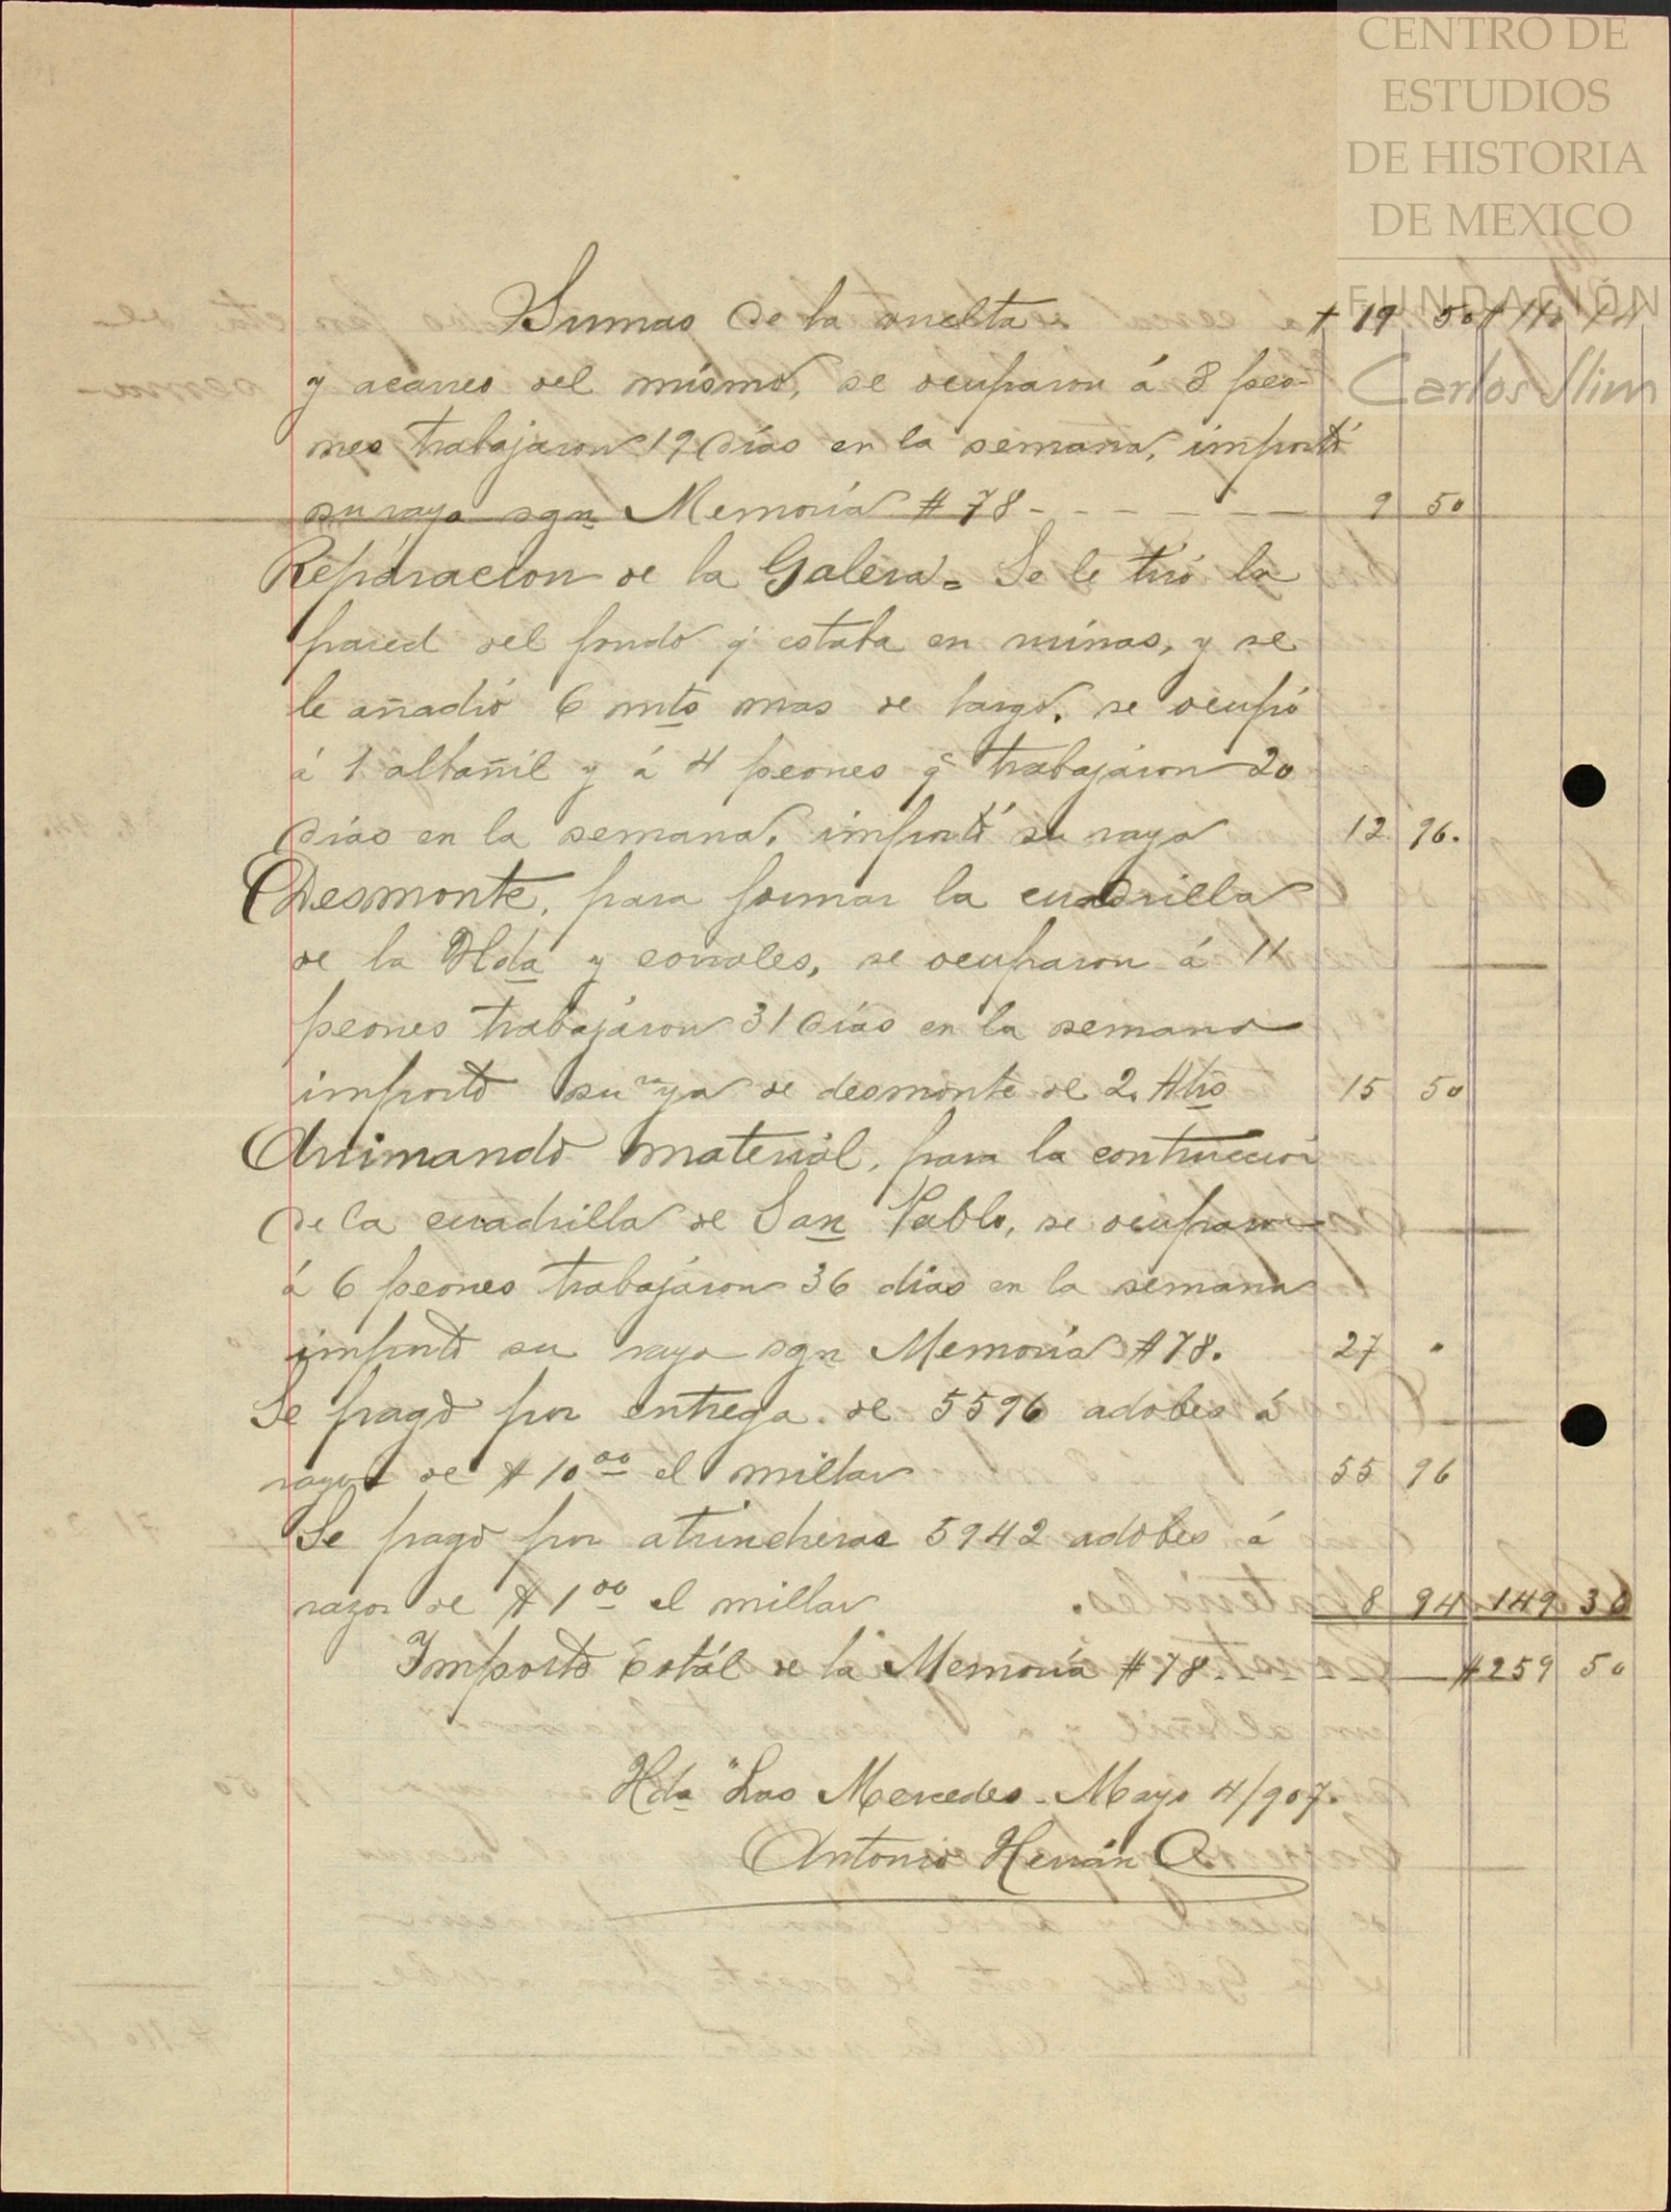 CENTRO DE
ESTUDIOS
DE HISTORIA
DE MEXICO
FUNDACIÓN
Carlos Slim
Sumas de la vuelta $ 19 50 $ 110 14
y acarreo del mismo, se ocuparon á 8 peo-
nes trabajaron 19 días en la semana, importó
su raya sgn Memoria # 78 - - - - - 9 50
Reparacion de la Galera = Se le tiró la
pared del fondo q' estaba en ruinas, y se
le añadió 6 mts mas de largo, se ocupó
á 1 albañil y á 4 peones q' trabajáron 20
días en la semana, importó su raya 12 96.
Desmonte, para formar la cuadrilla
de la Hda y corrales, se ocuparon á 11
peones trabajáron 31 días en la semana
importó su raya de desmonte de 2. Htrs 15 50
Arrimando material, para la contruccion
de la cuadrilla de San Pablo, se ocuparon
á 6 peones trabajáron 36 dias en la semana
importó su raya sgn Memoria # 78. 27 "
Se pagó por entrega de 5596 adobes á
razon de $ 10 00 el millar 55 96
Se pagó por atrincherar 5942 adobes á
razon de $ 1 00 el millar 8 94 149 36
Importó total de la Memoria # 78. - - - $ 259 50
Hda "Las Mercedes. Mayo 4/907.
Antonio Herrán C.